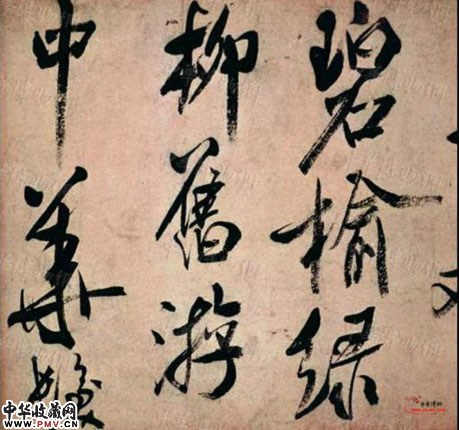 碧榆緑
柳舊游
中華髮
中华收藏网
WWW.PMV.CN